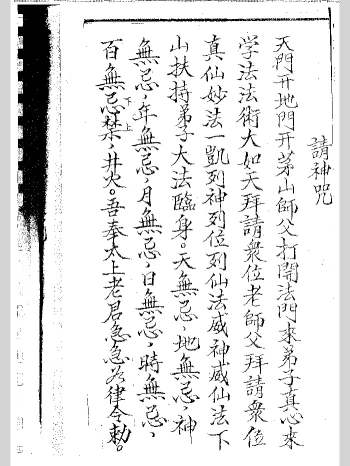 請神咒
天門開地門開茅山師父打開法門來弟子真心來
学法法術大如天拜請衆位老師父拜請衆位
真仙妙法一凱列神列位列仙法威神威仙法下
山扶持弟子大法臨身。天無忌，地無忌，神
無忌，年無忌，月無忌，日無忌，時無忌，
百無忌禁，井火。吾奉太上老君急急如律令勅。
下
上